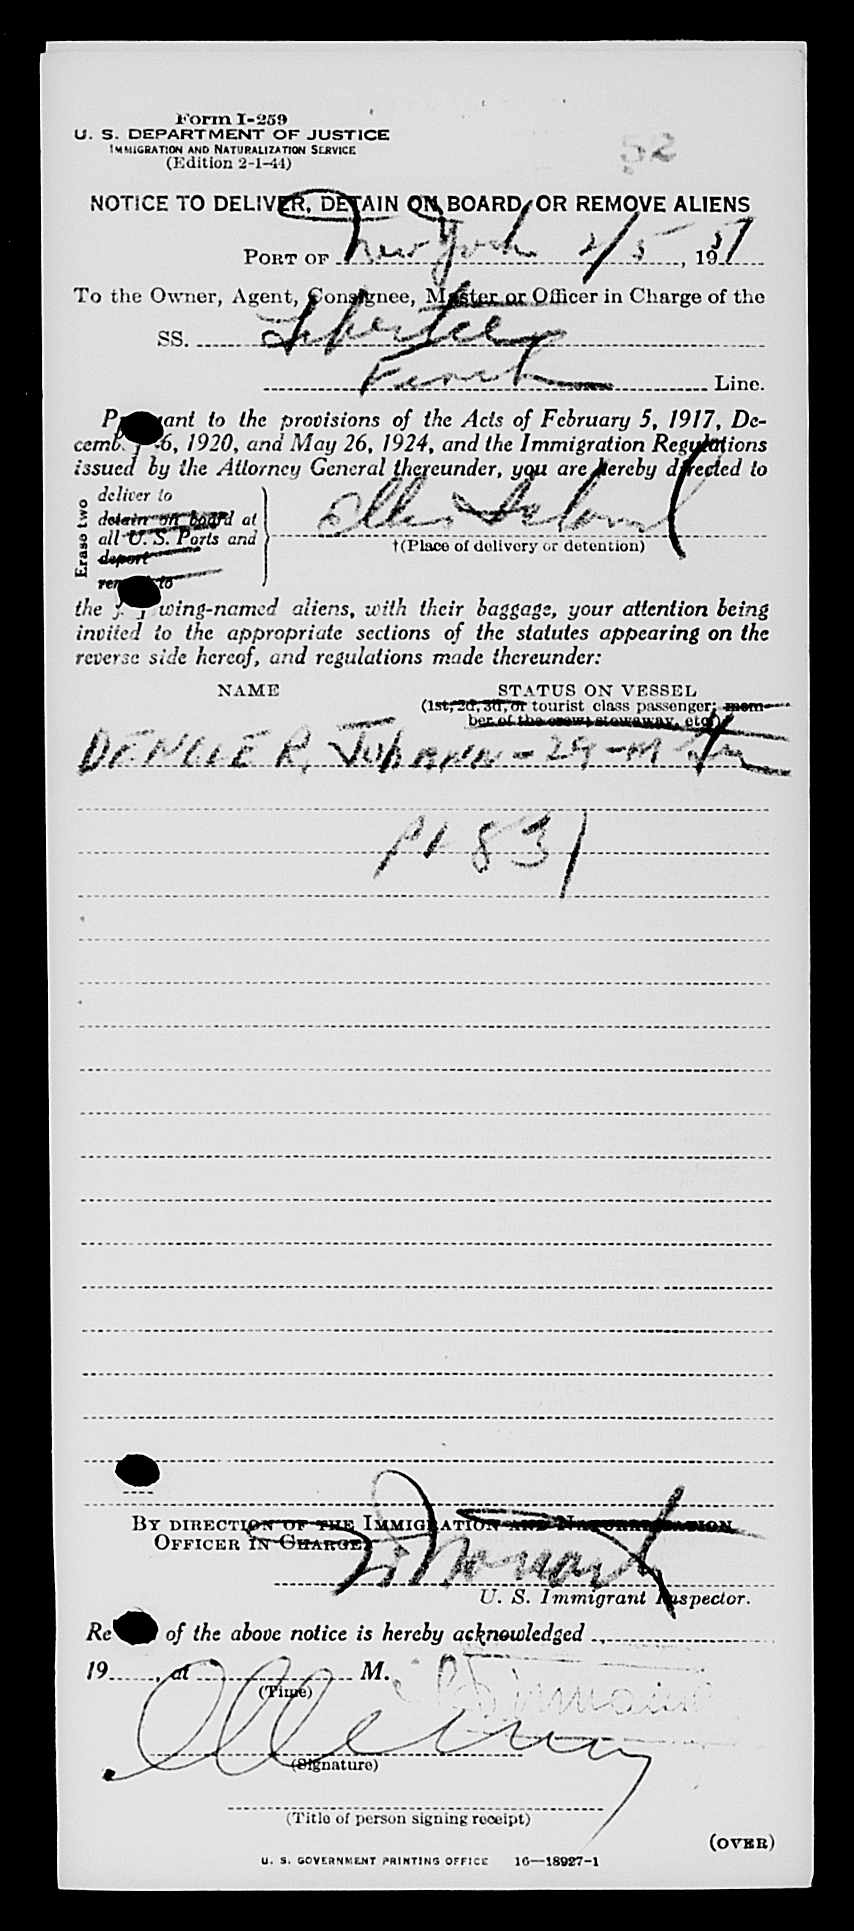 Form I-259
U. S. DEPARTMENT OF JUSTICE
IMMIGRATION AND NATURALIZATION SERVICE
(Edition 2-1-44)
52
NOTICE TO DELIVER, DETAIN ON BOARD, OR REMOVE ALIENS
PORT OF New York 2/5, 1951
To the Owner, Agent, Consignee, Master or Officer in Charge of the
SS. Liberte
French Line.
Pursuant to the provisions of the Acts of February 5, 1917, De-
cember 26, 1920, and May 26, 1924, and the Immigration Regulations
issued by the Attorney General thereunder, you are hereby directed to
Erase two
deliver to
detain on board at
all U. S. Ports and
deport
remove to
Ellis Island
†(Place of delivery or detention)
the following-named aliens, with their baggage, your attention being
invited to the appropriate sections of the statutes appearing on the
reverse side hereof, and regulations made thereunder:
NAME
STATUS ON VESSEL
(1st, 2d, 3d, or tourist class passenger; mem-
ber of the crew; stowaway, etc.)
DENGLER, Johann - 29 - M
P1 831
BY DIRECTION OF THE IMMIGRATION AND NATURALIZATION
OFFICER IN CHARGE,
U. S. Immigrant Inspector.
Receipt of the above notice is hereby acknowledged
19 , at M.
(Time)
(Signature)
(Title of person signing receipt)
(OVER)
U. S. GOVERNMENT PRINTING OFFICE 16—18927-1